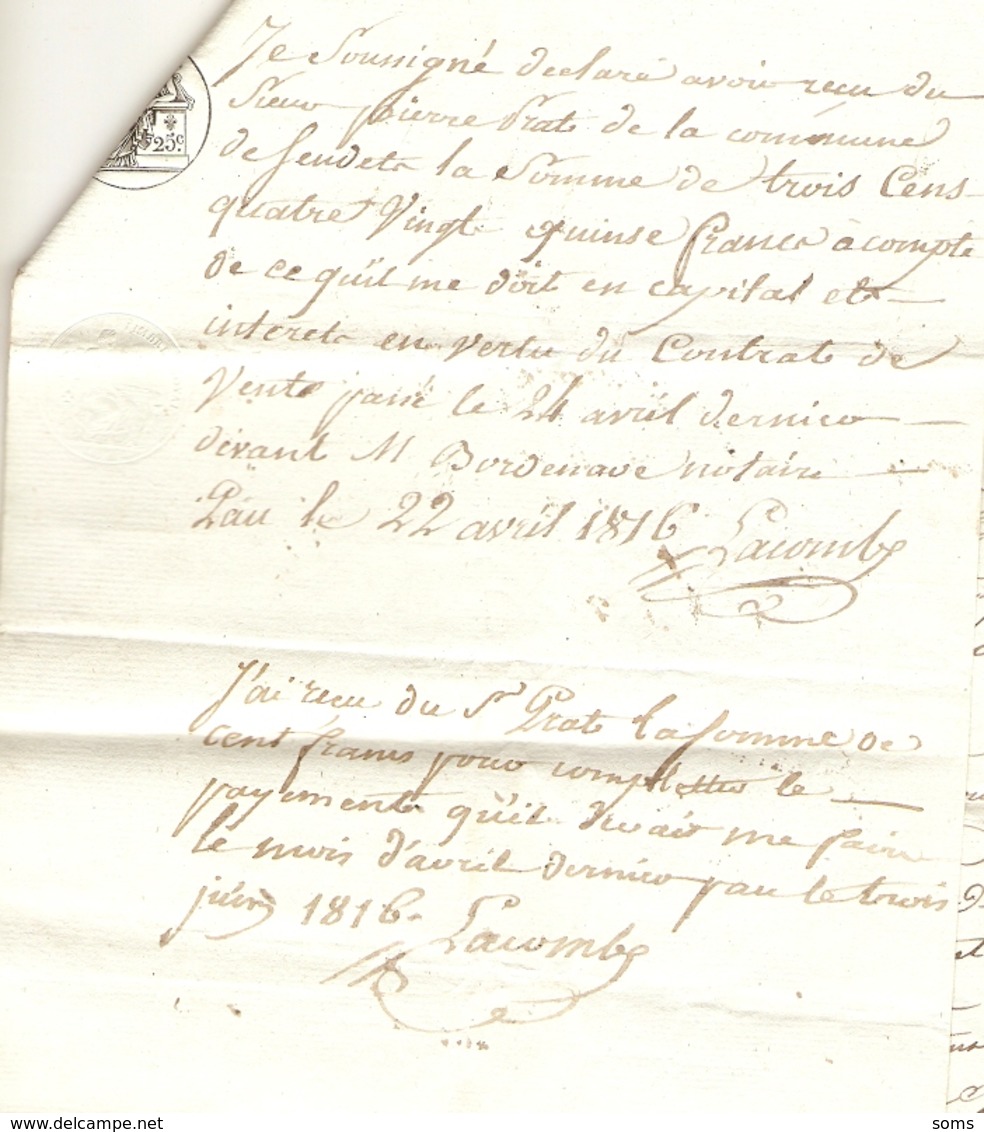 Je Soussigné declare avoir reçu du
Sieur pierre Prat de la commune
de Sendets la Somme de trois Cens
quatre Vingt quinse francs à compte
de ce qu'il me doit en capital et
interets en vertu du Contrat de
Vente passé le 24 avril dernier
devant M Bordenave notaire
Pau le 22 avril 1816 Lacombe
J'ai reçu du Sr Prat la somme de
cent francs pour completter le
payement qu'il devait me faire
le mois d'avril dernier pau le trois
juin 1816. Lacombe
25c
delcampe.net
soms